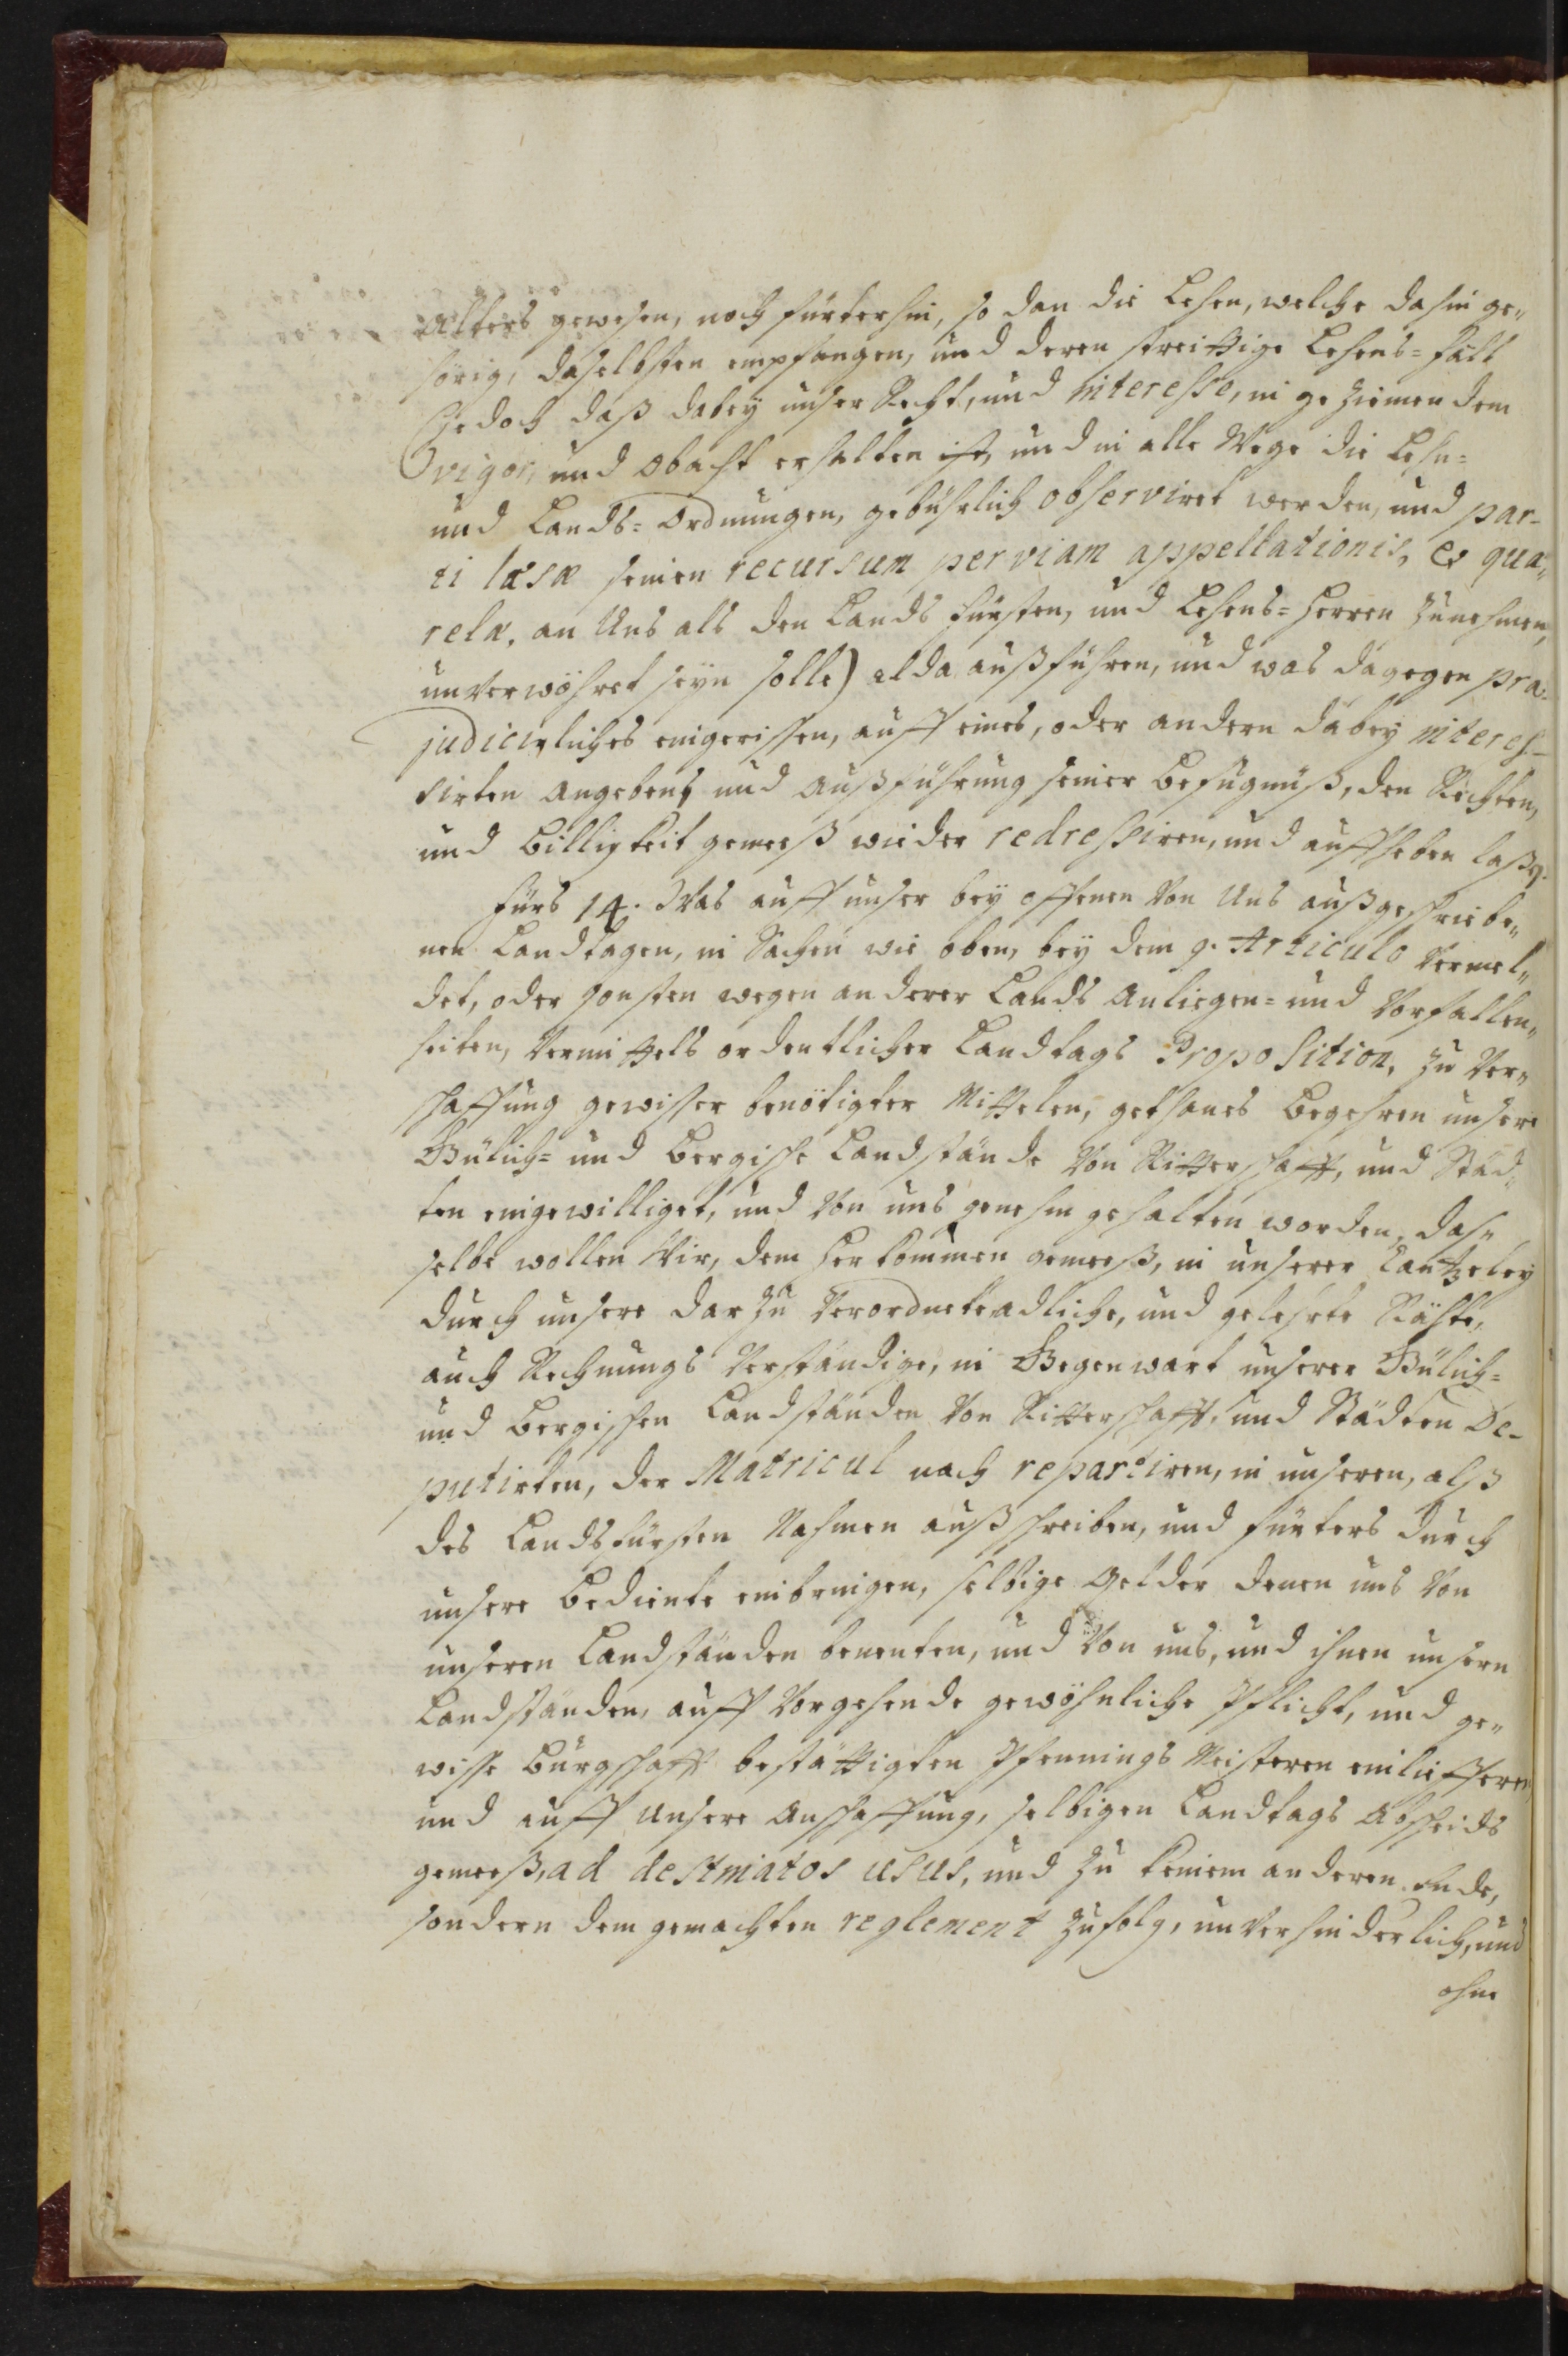 alters gewesen, noch fürterhin, so dan die Lehen, welche dahin ge„
hörig, daselbsten empfangen, und deren streittige Lehens=fäll
(Jedoch daß dabey unser Recht, und interesse, in geziemendem
vigor, und obacht erhalten ist, und in alle Wege die Lehn=
und Lands=Ordnungen, gebührlich observiret werden, und par-
ti læsæ seinen recursum per viam appellationis, et quæ„
relæ, an Uns als den Lands Fürsten, und Lehens=Herren zunehmen,
unverwöhret seyn solle) alda außführen, und was dagegen præ=
judicirliches eingerissen, auff eines, oder andern dabey interes-
sirten angeben, und außführung seiner befügnüß, den Rechten,
und billigkeit gemeeß wieder redressiren, und auffheben laßen.
Fürs 14. Was auff unser bey offenen von Uns außgeschriebe„
nen Landtagen, in Sachen wie oben, bey dem 9. Articulo vermel„
det, oder sonsten wegen anderer Lands Anliegen= und Vorfallen„
heiten, vermittels ordentlicher Landtags Proposition, zu Ver„
schaffung gewisser benötigter Mittelen, gethanes begehren unsere
Gülich= und bergische Landstände von Ritterschafft, und Städ„
ten eingewilliget, und von uns genehm gehalten worden, das„
selbe wollen Wir, dem herkommen gemeeß, in unserer Cantzeley
durch unsere darzu verordnete adliche, und gelehrte Räthe,
auch Rechnungs Verständige, in Gegenwart unserer Gülich=
und bergischen Landständen von Ritterschafft, und Städten De-
putirten, der Matricul nach repartiren, in unseren, alß
des Landsfürsten Nahmen außschreiben, und fürters durch
unsere bediente einbringen, selbige gelder denen uns von
unseren Landständen benenten, und von uns, und ihnen unsern
Landständen, auff vorgehende gewöhnliche Pflicht, und ge„
wisse bürgschafft bestättigten Pfennings Meisteren einlieffern,
und auff unsere Anschaffung, selbigen Landtags Abscheids
gemeeß, ad destinatos usus, und zu keinem anderen ende,
sondern dem gemachten reglement zufolg, unverhinderlich, und
ohne